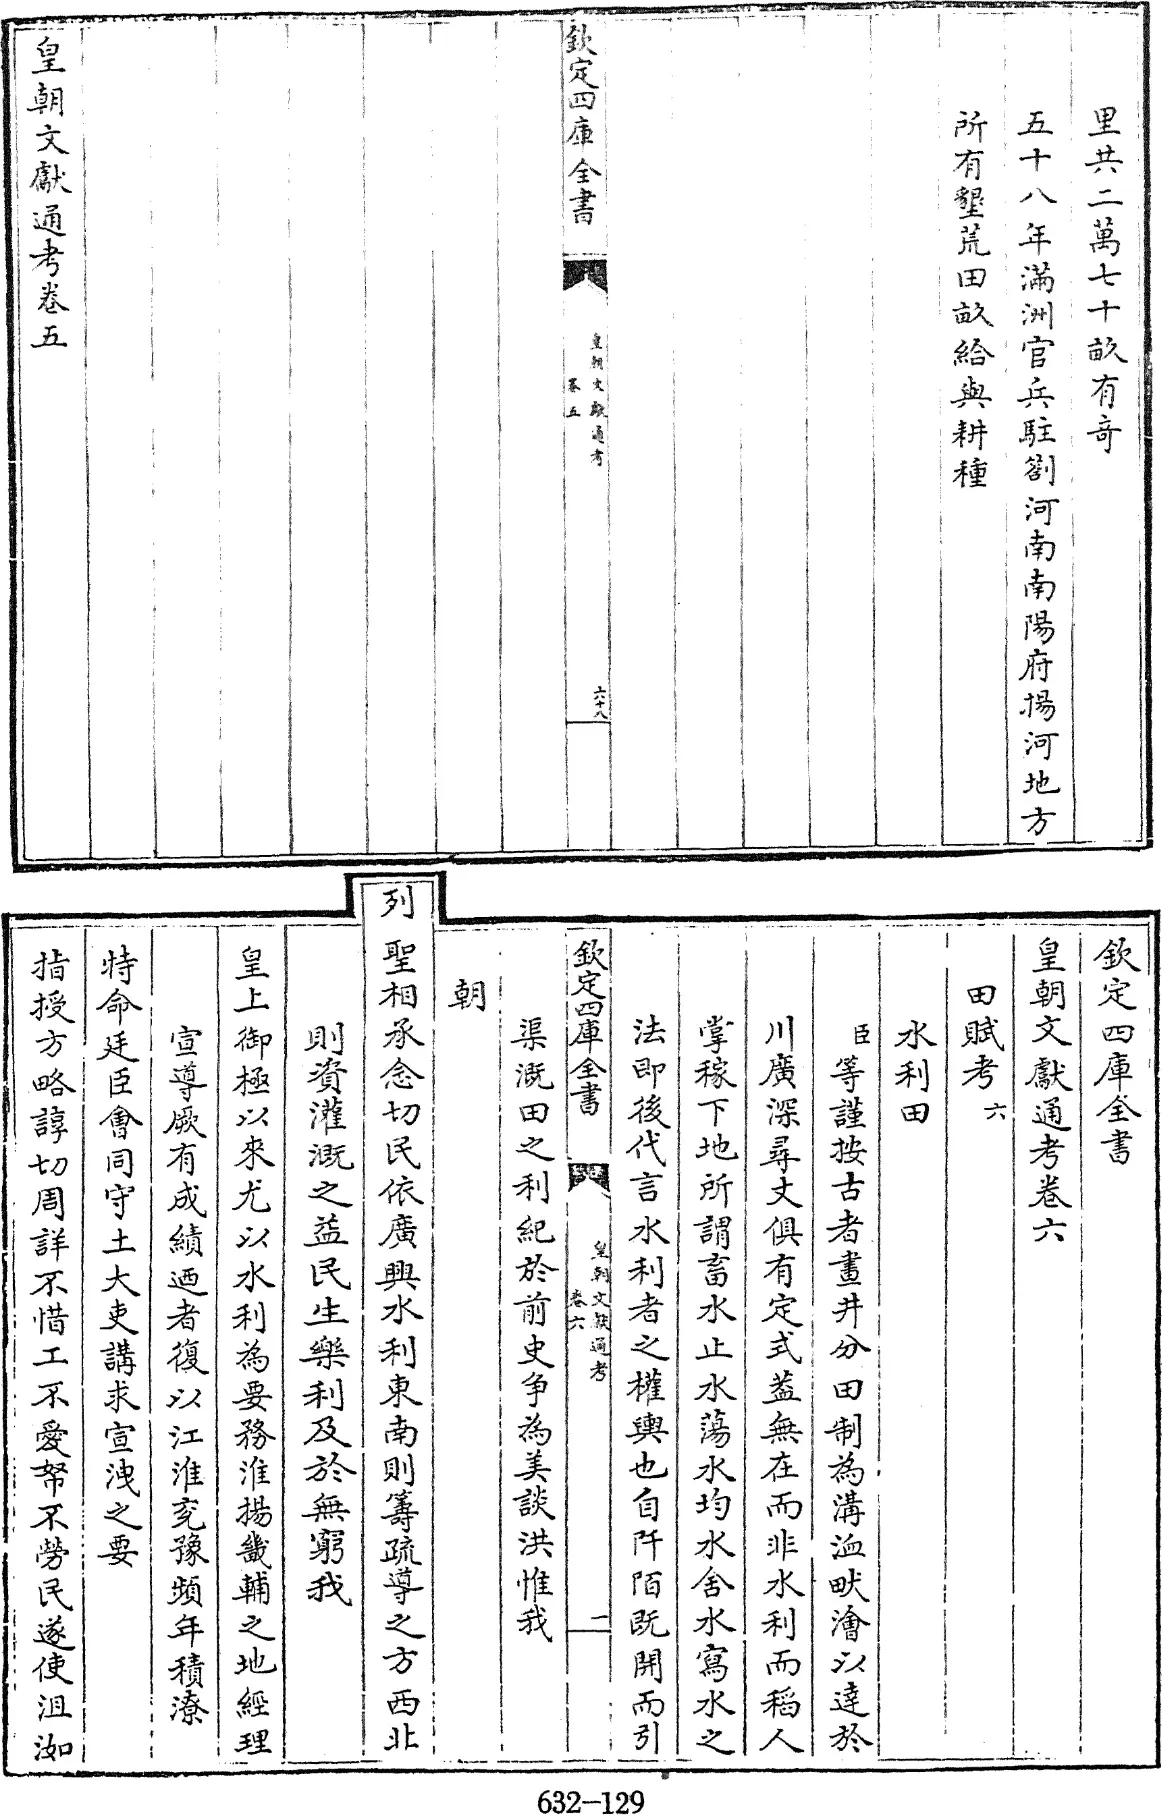 里共二萬七十畝有奇
五十八年滿洲官兵駐劄河南南陽府揚河地方
所有墾荒田畝給與耕種
欽定四庫全書
皇朝文獻通考
卷五
六十八
皇朝文獻通考卷五
欽定四庫全書
皇朝文獻通考卷六
田賦考六
水利田
臣等謹按古者畫井分田制為溝洫畎澮以達於
川廣深尋丈俱有定式葢無在而非水利而稻人
掌稼下地所謂畜水止水蕩水均水舍水寫水之
法即後代言水利者之權輿也自阡陌既開而引
欽定四庫全書
皇朝文獻通考
卷六
一
渠溉田之利紀於前史争為美談洪惟我
朝
列聖相承念切民依廣興水利東南則籌疏導之方西北
則資灌溉之益民生樂利及於無窮我
皇上御極以來尤以水利為要務淮揚畿輔之地經理
宣導厥有成績廼者復以江淮兗豫頻年積潦
特命廷臣會同守土大吏講求宣洩之要
指授方略諄切周詳不惜工不愛帑不勞民遂使沮洳
632-129